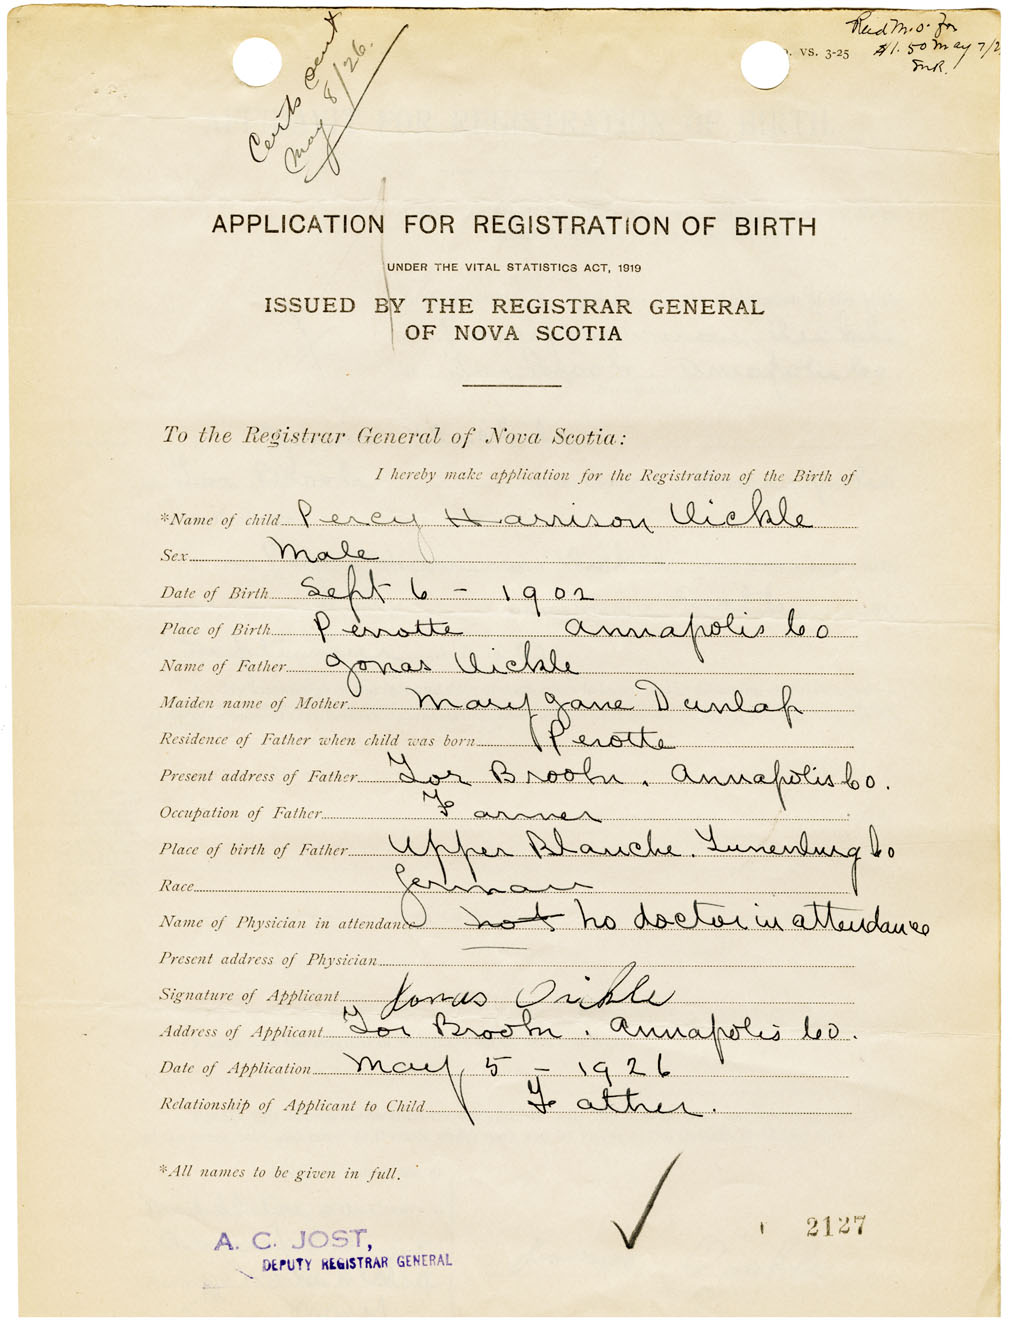 Certs sent
May 8/26.
Recd M.O. for
$1.50 May 7/2
VS. 3-25
APPLICATION FOR REGISTRATION OF BIRTH
UNDER THE VITAL STATISTICS ACT, 1919
ISSUED BY THE REGISTRAR GENERAL
OF NOVA SCOTIA
To the Registrar General of Nova Scotia:
I hereby make application for the Registration of the Birth of
*Name of child Percy Harrison Vickle
Sex Male
Date of Birth Sept 6 - 1902
Place of Birth Perrotte Annapolis Co
Name of Father Jonas Vickle
Maiden name of Mother Mary Jane Dunlap
Residence of Father when child was born Perotte
Present address of Father Tor Brook . Annapolis Co.
Occupation of Father Farmer
Place of birth of Father Upper Blanche. Lunenburg Co
Race German
Name of Physician in attendance not no doctor in attendance
Present address of Physician
Signature of Applicant Jonas
Address of Applicant Tor Brook . Annapolis Co.
Date of Application May 5 - 1926
Relationship of Applicant to Child Father.
*All names to be given in full.
2127
A. C. JOST,
DEPUTY REGISTRAR GENERAL